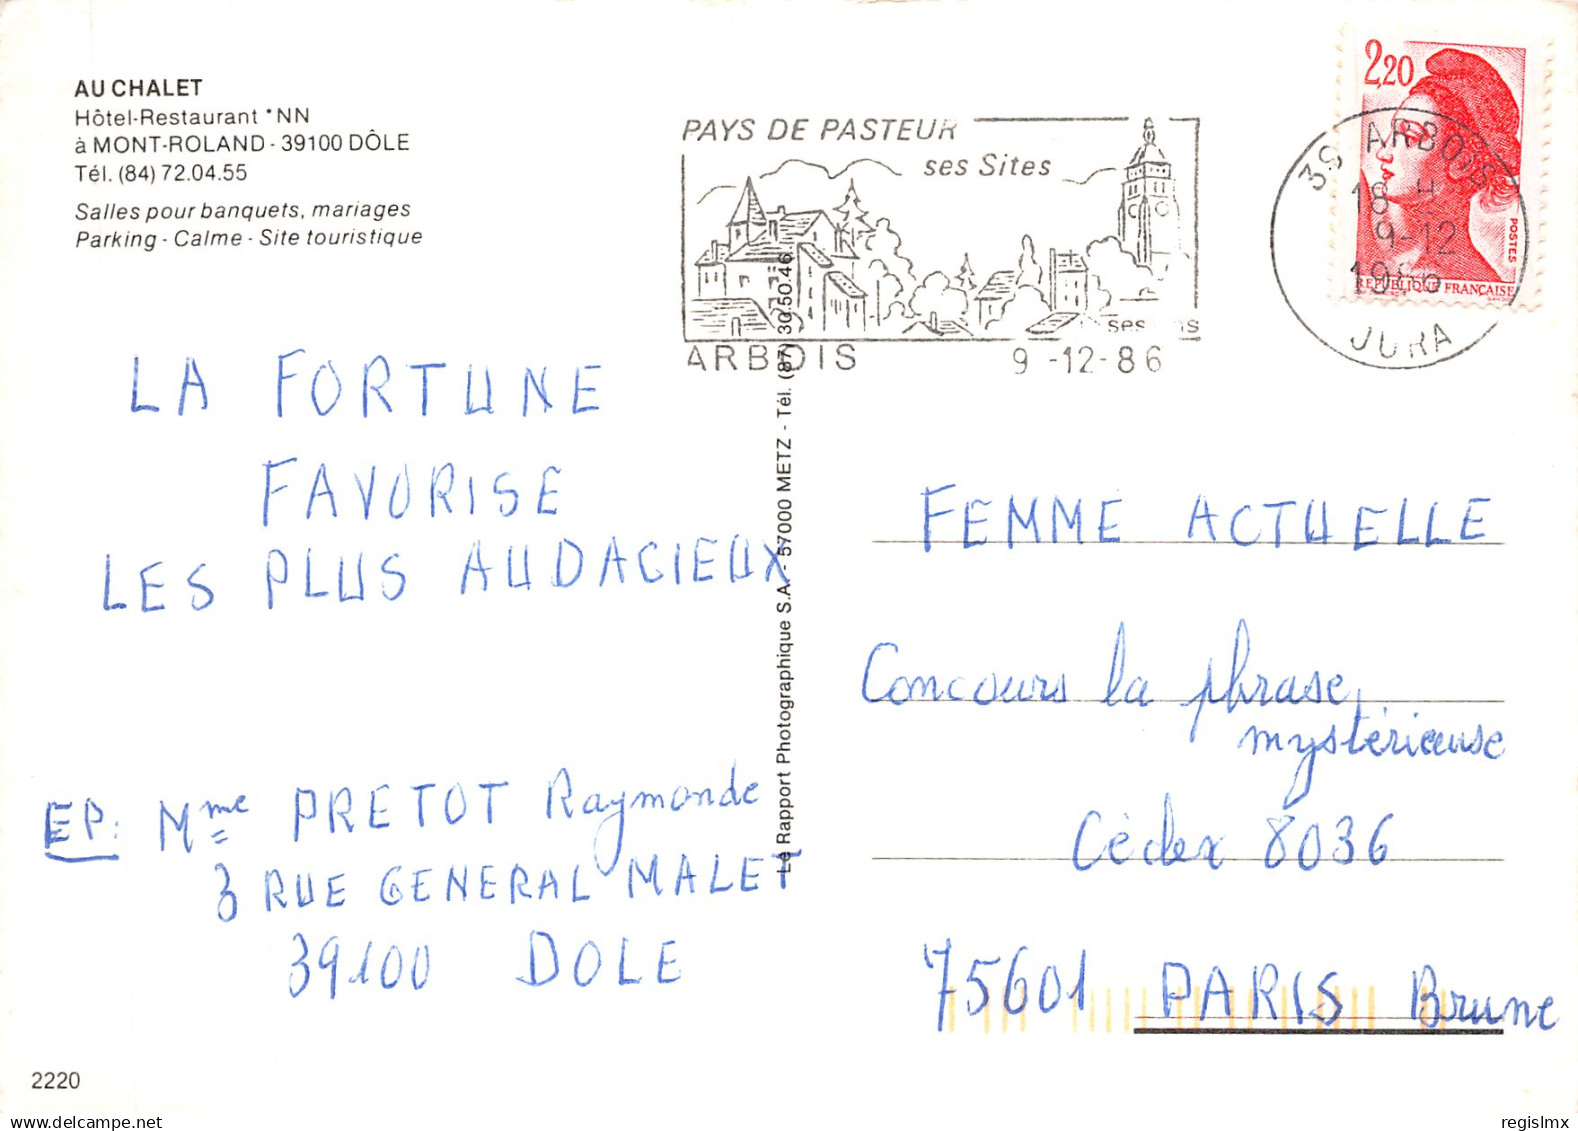 AU CHALET
Hôtel-Restaurant *NN
à MONT-ROLAND - 39100 DÔLE
Tél. (84) 72.04.55
Salles pour banquets, mariages
Parking - Calme - Site touristique
PAYS DE PASTEUR
ses Sites
ARBOIS 9-12-86
2,20
POSTES
RÉPUBLIQUE FRANÇAISE
39 ARBOIS
18 H
9-12
1986
JURA
LA FORTUNE
FAVORISE
LES PLUS AUDACIEUX
EP: Mme PRETOT Raymonde
3 RUE GENERAL MALET
39100 DOLE
Le Rapport Photographique S.A. - 57000 METZ - Tél. (87) 30.50.46
FEMME ACTUELLE
Concours la phrase
mystérieuse
Cèdex 8036
75601 PARIS Brune
2220
regislmx